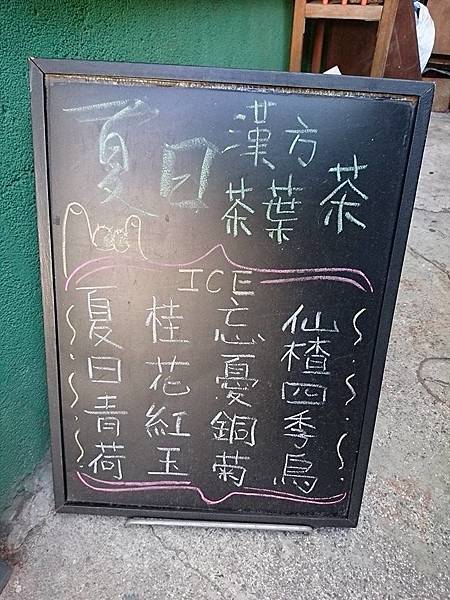 夏日漢方
茶葉茶
ICE
仙楂四季烏
忘憂銅菊
桂花紅玉
夏日青荷